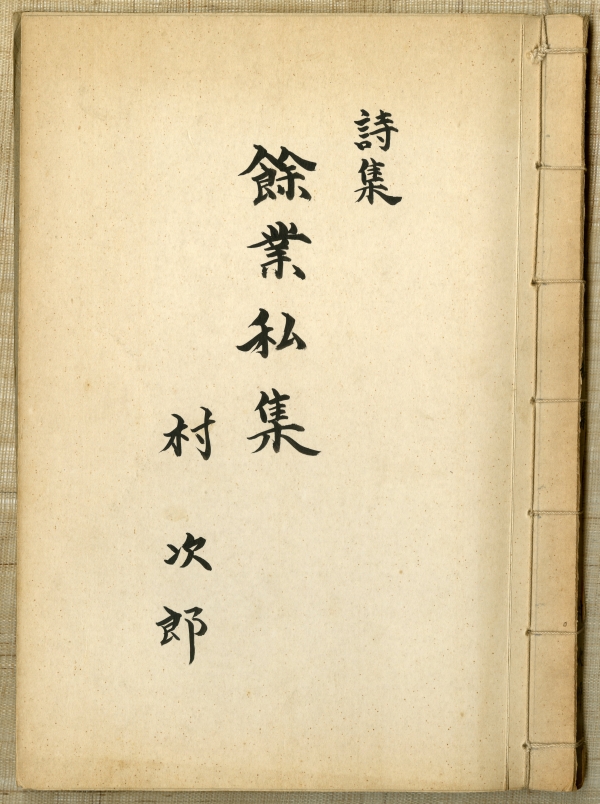 詩集
餘業私集
村次郎